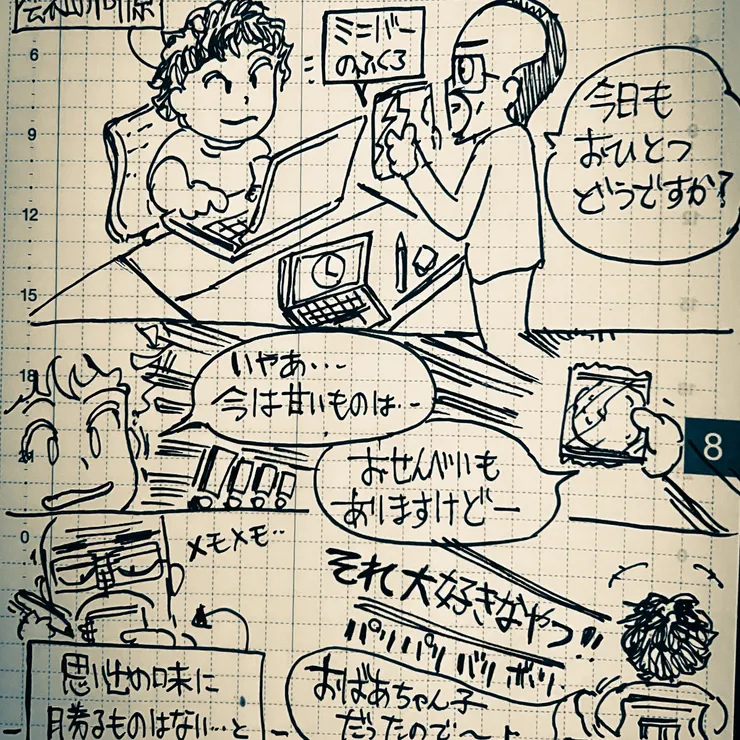 ミニバー
のふくろ
今日も
おひとつ
どうですか?
いやあ・・・
今は甘いものは・・
おせんべいも
ありますけどー
メモメモ・・
それ大好きなやつ!!
パリパリ バリ ボリ・
思い出の味に
勝るものはない・・・と
おばあちゃん子
だったので〜
6
9
12
15
18
21
0
8